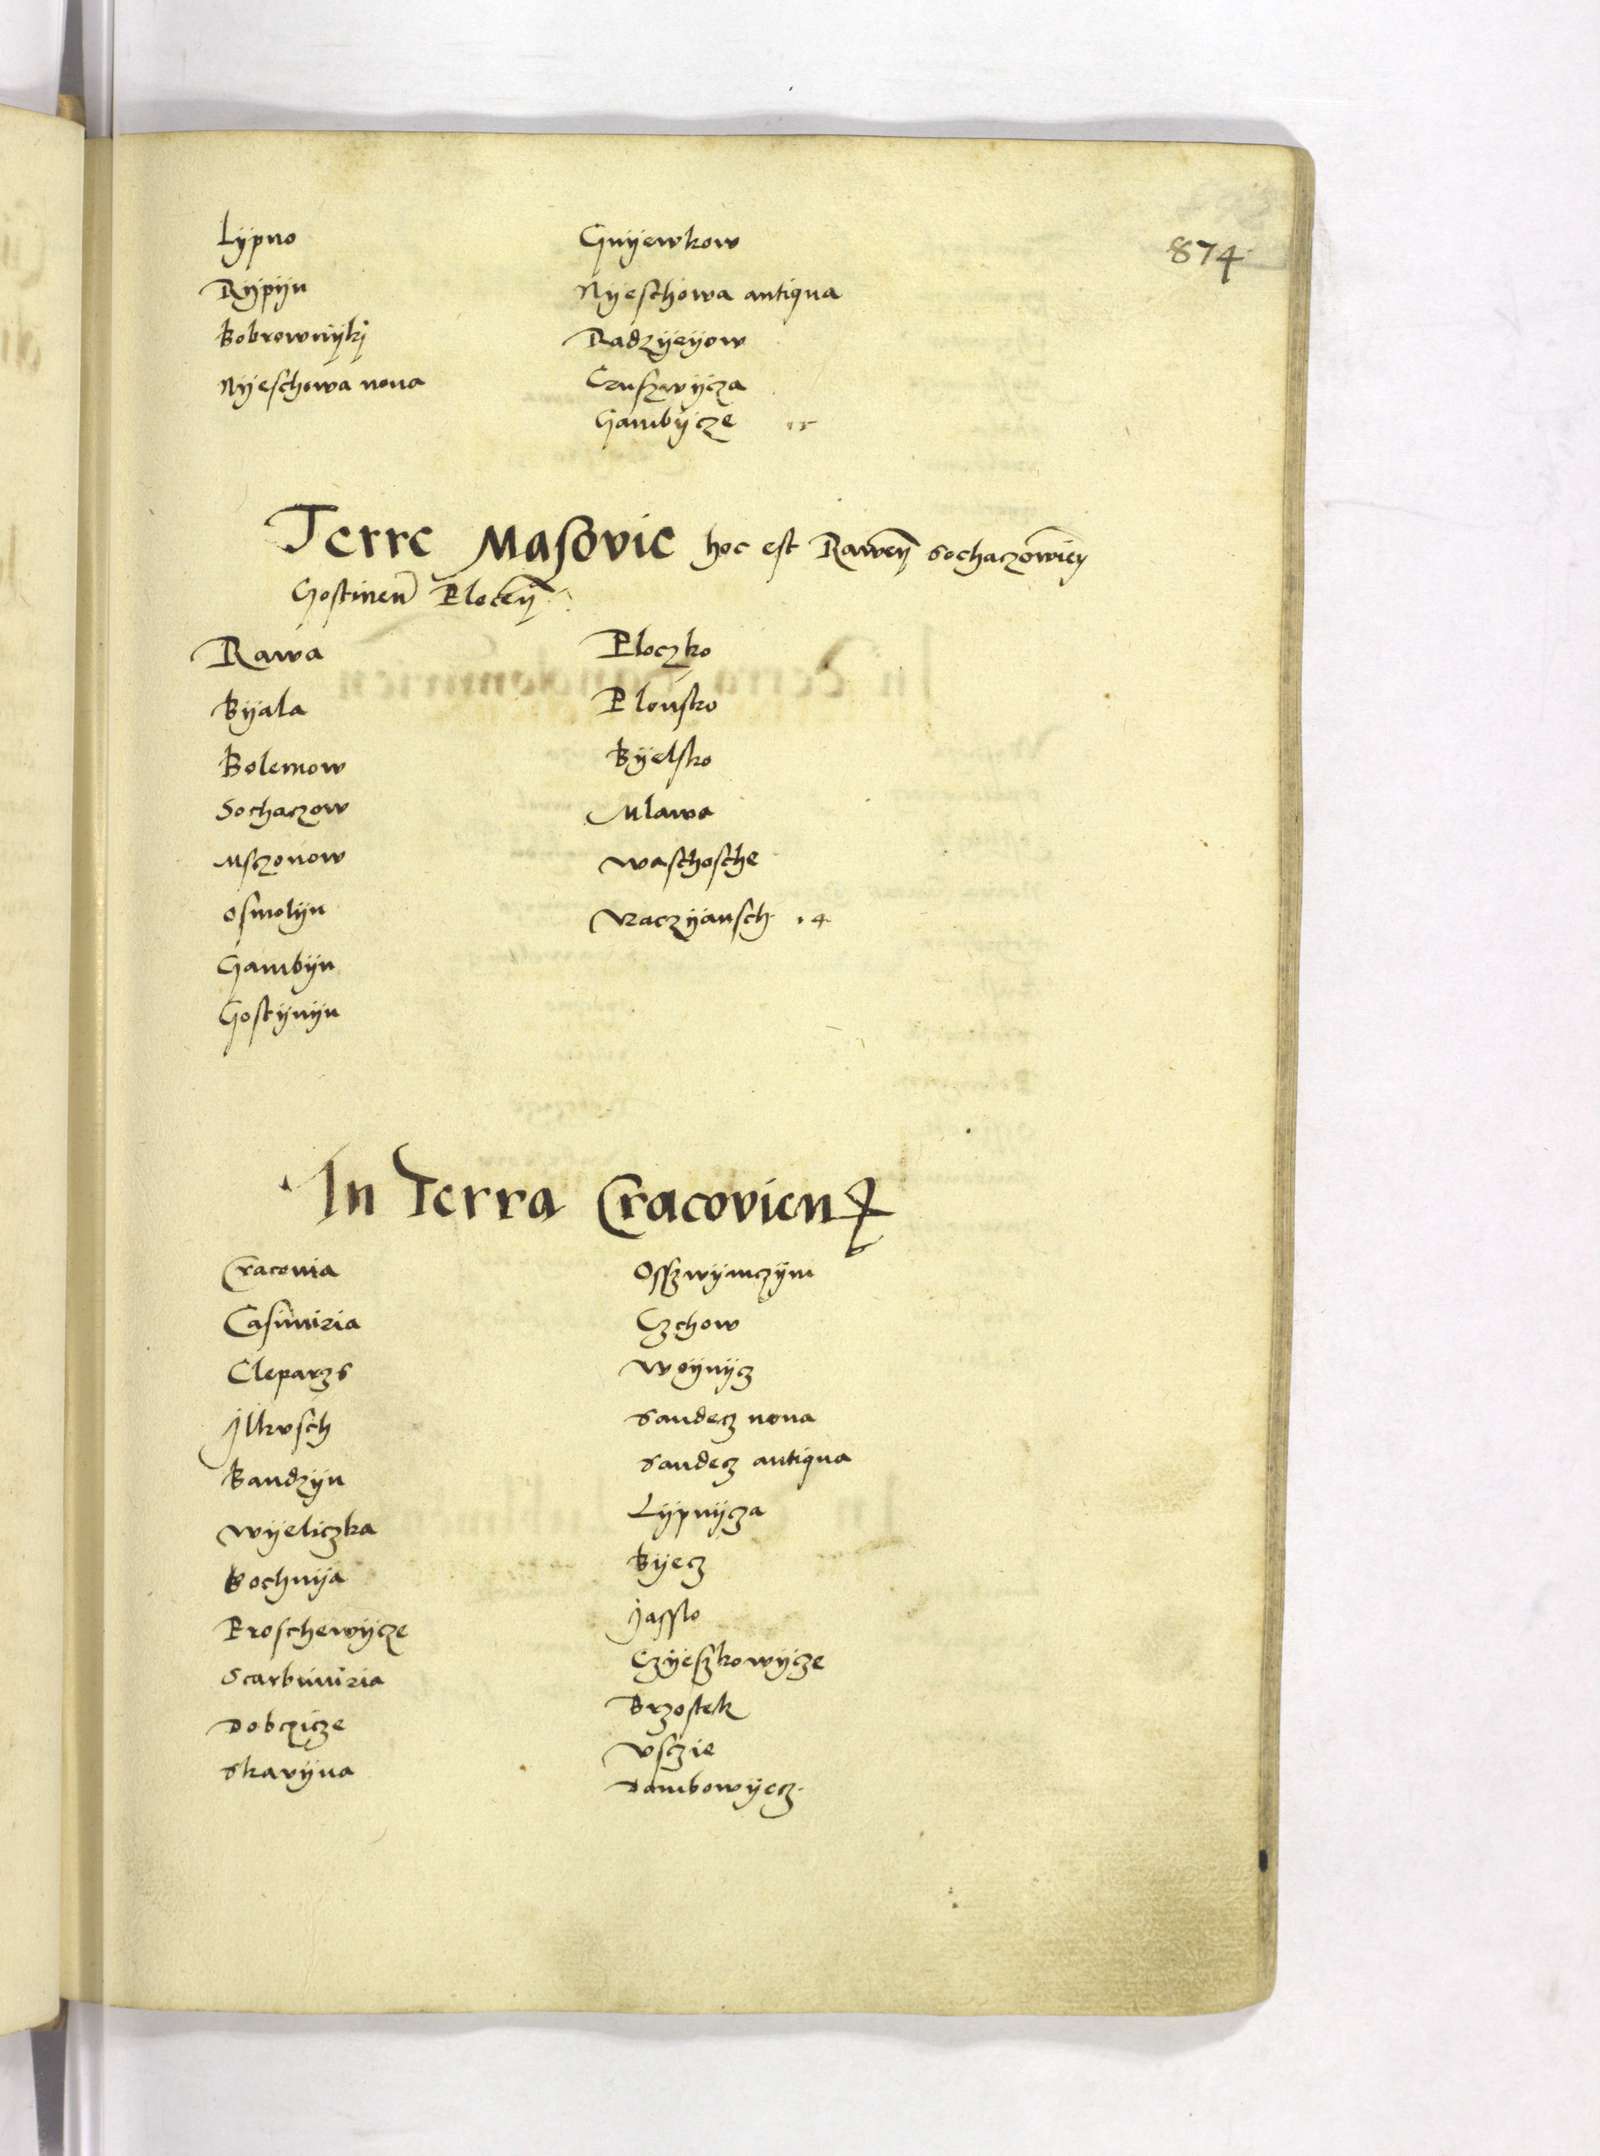 874
Lÿpno
Rÿpÿn
Bobrownÿkÿ
Nÿeschowa nova
Gnÿewkow
Nÿeschowa antiqua
Radzÿeÿow
Cruszwÿcza
Gambÿcze 15
Terre Masovie hoc est Raweñ Sochaczowieñ
Gostinen̄ Ploceñ
Rawa
Bÿala
Bolemow
Sochaczow
Msczonow
Osmolÿn
Gambÿn
Gostÿnÿn
Ploczko
Plonsko
Bÿelsko
Mlawa
Waschosche
Raczÿansch 14
In Terra Cracovien
Cracovia
Casimiria
Cleparzs
Jlkusch
Bandzÿn
Wÿeliczka
Bochnÿa
Proschewÿcze
Scarbimiria
Dobczicze
Skavÿna
Osszwÿmczÿm
Czchow
Woÿnÿcz
Sandecz nova
Sandecz antiqua
Lÿpnÿcza
Bÿecz
Jasslo
Czÿeszkowÿcze
Brzostek
Vsczie
Dambowÿecz